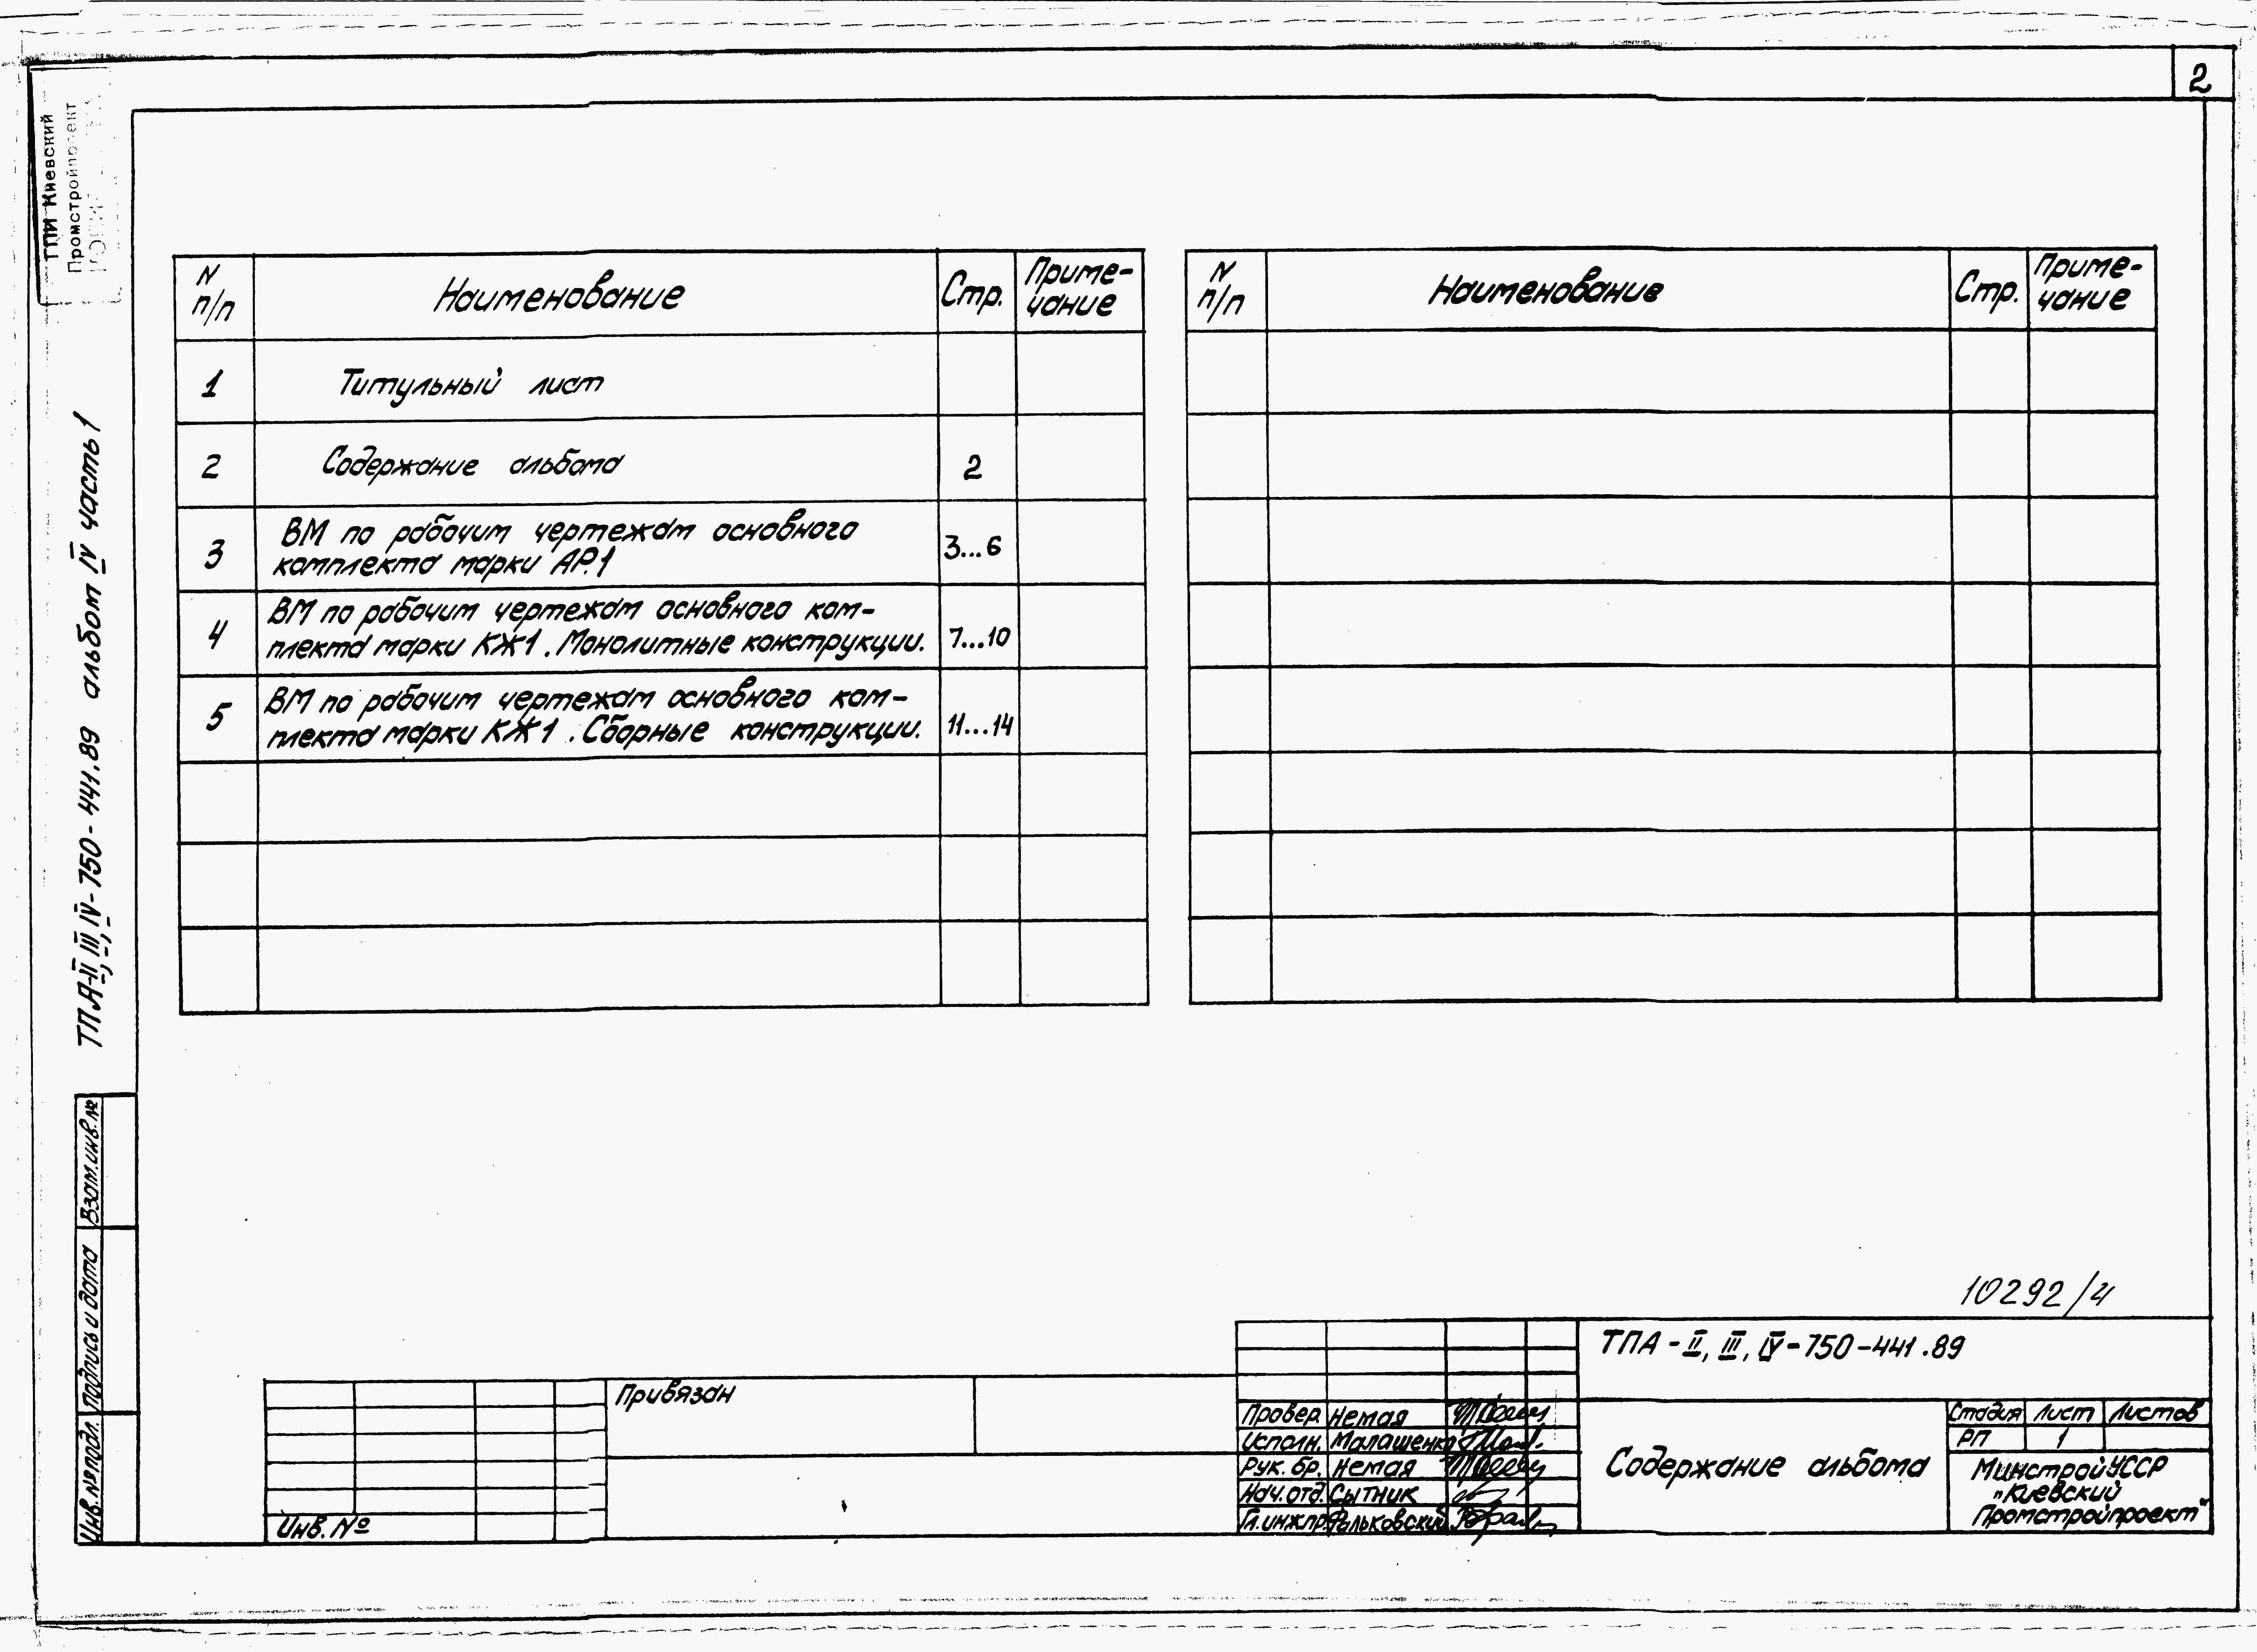 2
ТПИ Киевский
Промстройпроект
ТПА-II, III, IV-750-441.89 альбом IV часть 1
N п/п Наименование Стр. Приме-чание
1 Титульный лист
2 Содержание альбома 2
3 ВМ по рабочим чертежам основного
комплекта марки АР.1 3...6
4 ВМ по рабочим чертежам основного ком-
плекта марки КЖ1. Монолитные конструкции. 7...10
5 ВМ по рабочим чертежам основного ком-
плекта марки КЖ1. Сборные конструкции. 11...14
N п/п Наименование Стр. Приме-чание
Взам.инв.№
Подпись и дата
Инв.№подл.
10292/4
Привязан
Инв. №
ТПА-II, III, IV-750-441.89
Провер. Немая
Исполн. Малашенко
Рук. бр. Немая
Нач. отд. Сытник
Гл.инж.пр. Ральковский
Содержание альбома
Стадия Лист Листов
РП 1
Минстрой УССР
"Киевский
Промстройпроект"